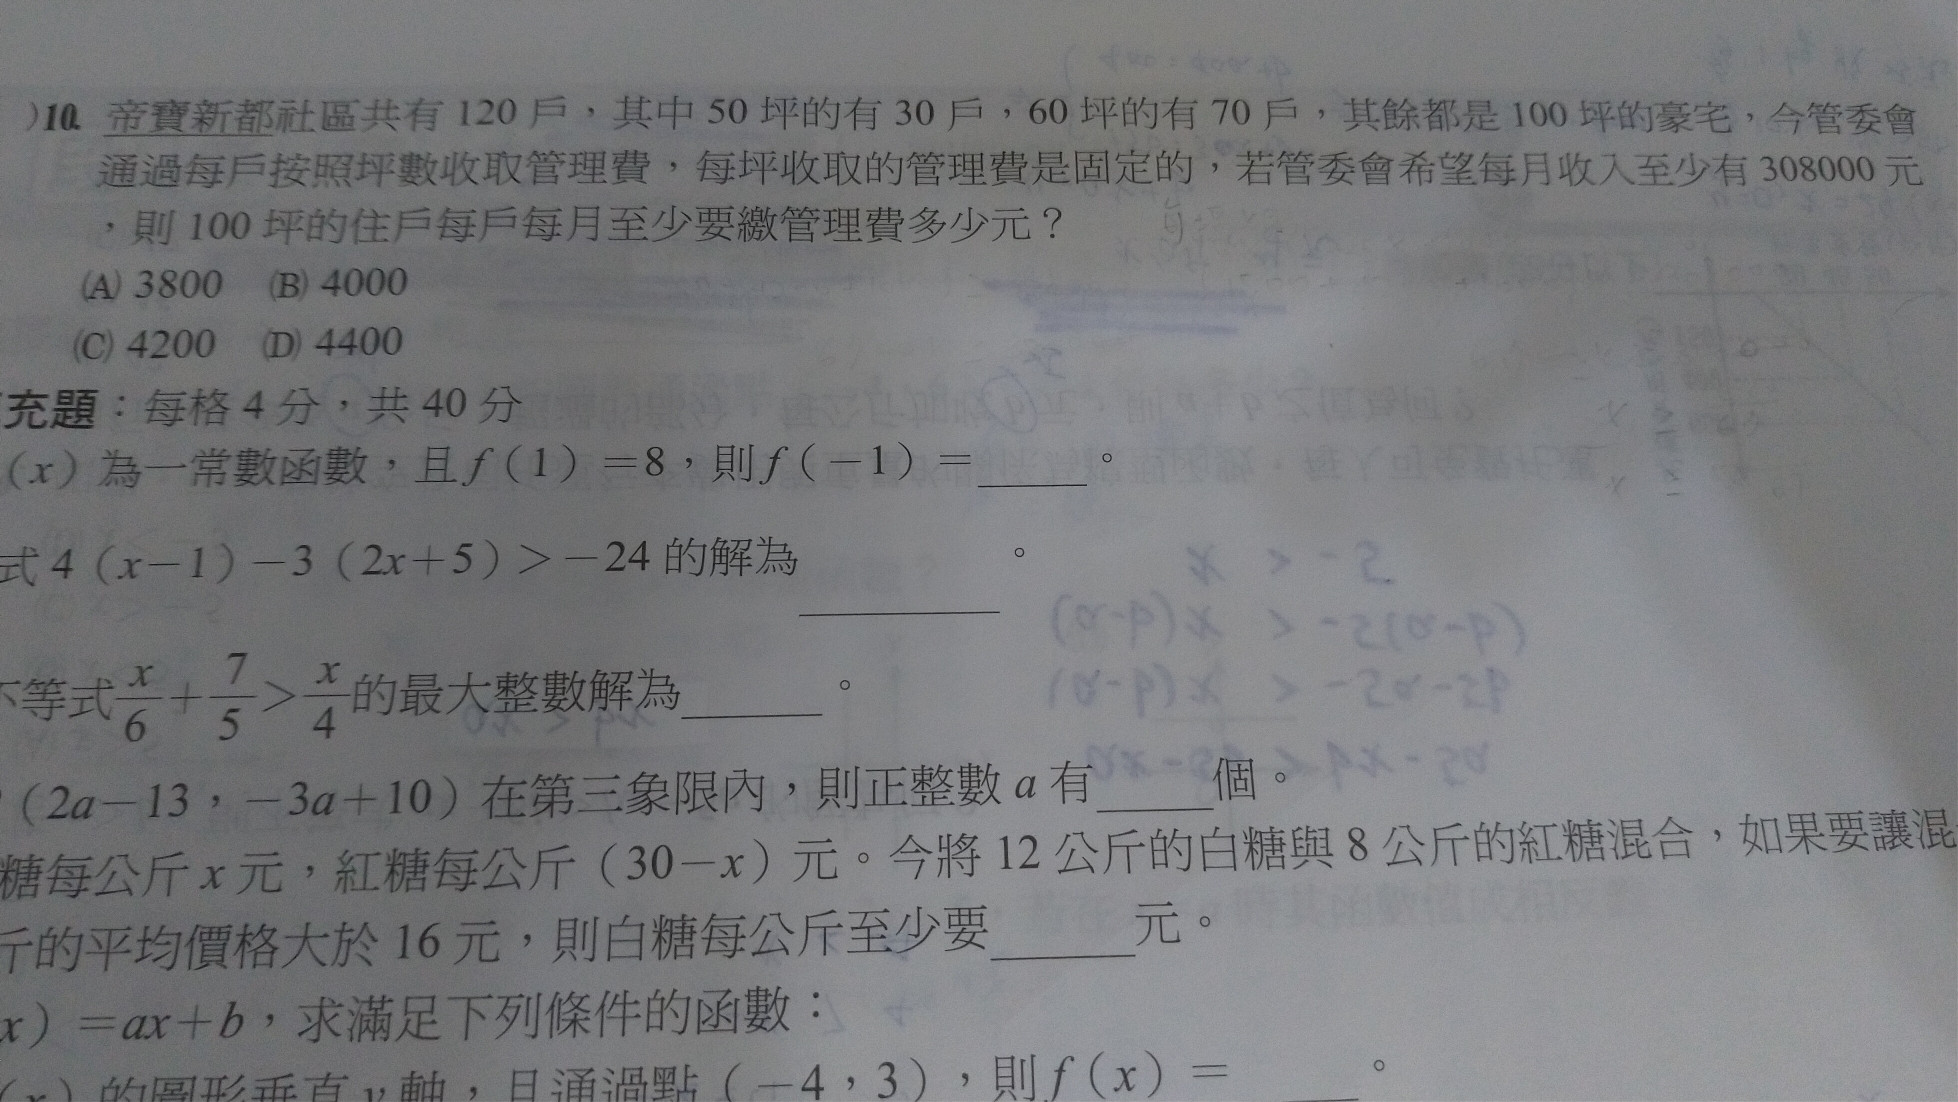 )10. 帝寶新都社區共有 120 戶，其中 50 坪的有 30 戶，60 坪的有 70 戶，其餘都是 100 坪的豪宅，今管委會
通過每戶按照坪數收取管理費，每坪收取的管理費是固定的，若管委會希望每月收入至少有 308000 元
，則 100 坪的住戶每戶每月至少要繳管理費多少元？
(A) 3800 (B) 4000
(C) 4200 (D) 4400
充題：每格 4 分，共 40 分
(x) 為一常數函數，且 f(1)=8，則 f(-1)=______。
式 4(x-1)-3(2x+5)>-24 的解為______。
不等式 x/6+7/5>x/4 的最大整數解為______。
(2a-13，-3a+10) 在第三象限內，則正整數 a 有______個。
糖每公斤 x 元，紅糖每公斤 (30-x) 元。今將 12 公斤的白糖與 8 公斤的紅糖混合，如果要讓混
斤的平均價格大於 16 元，則白糖每公斤至少要______元。
x)=ax+b，求滿足下列條件的函數：
(x) 的圖形垂直 y 軸，且通過點 (-4，3)，則 f(x)=______。